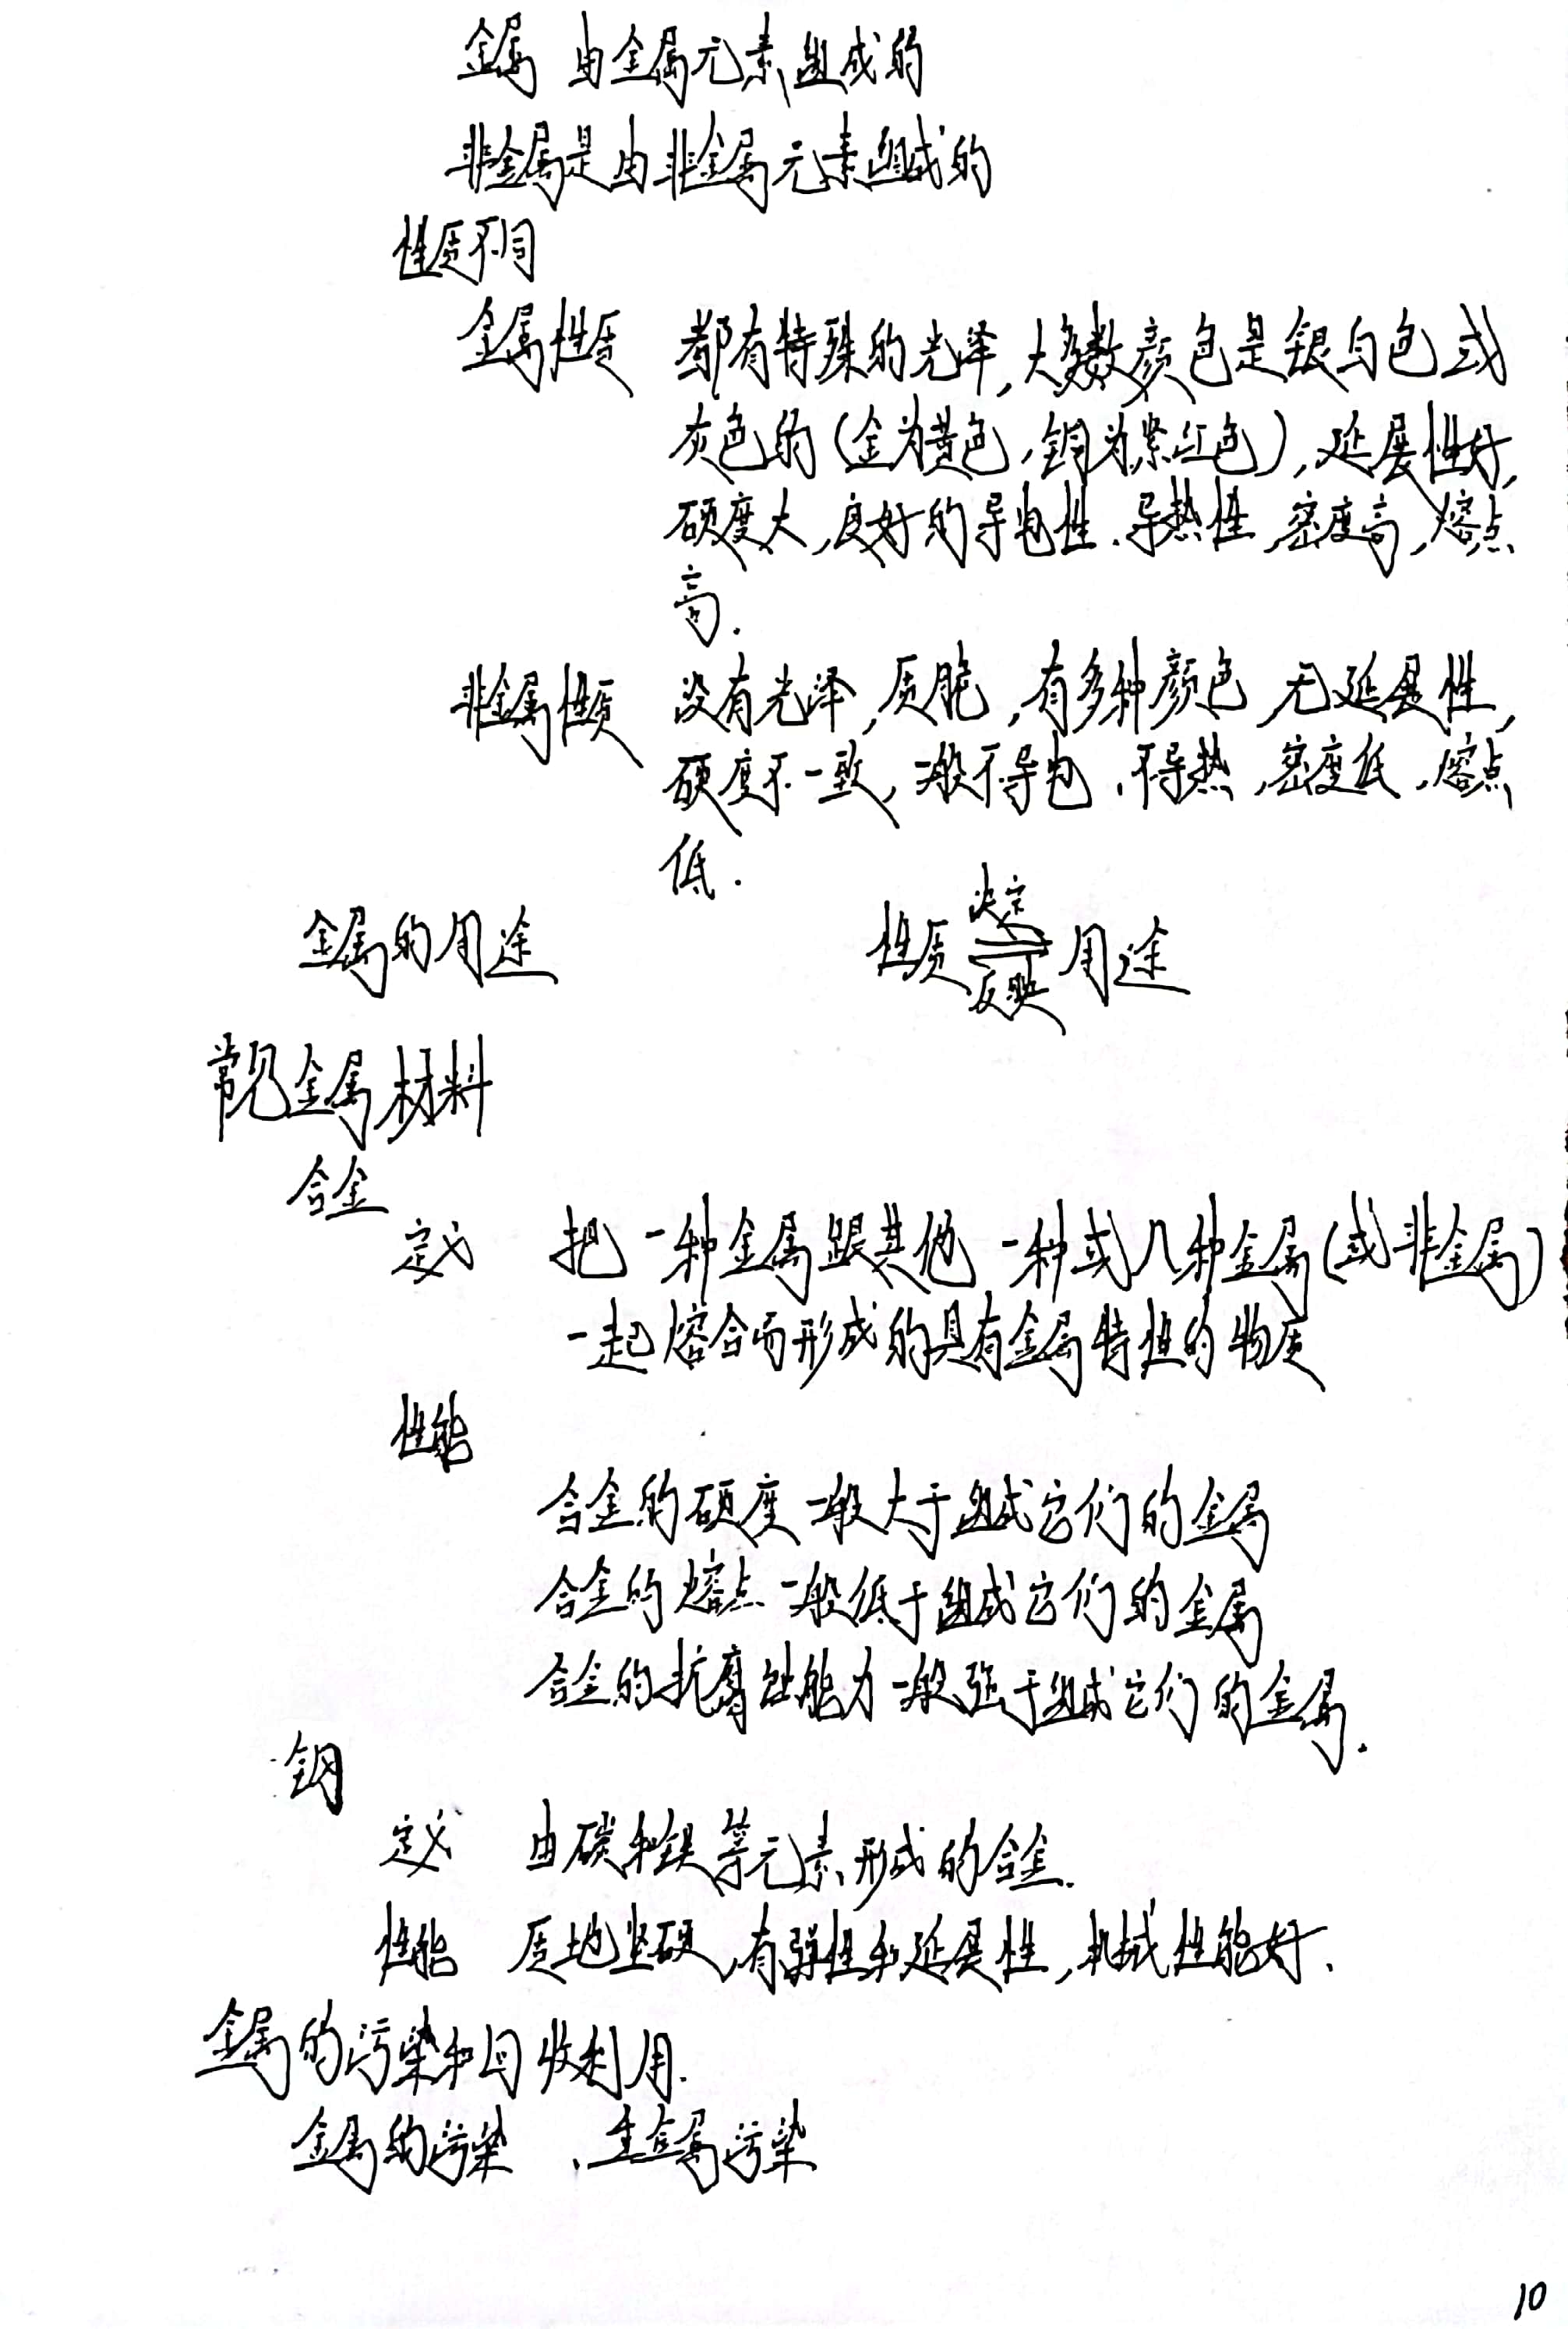 金属 由金属元素组成的
非金属是由非金属元素组成的
性质不同
金属性质 都有特殊的光泽,大多数颜色是银白色或
灰色的(金为黄色,铜为紫红色),延展性好,
硬度大,良好的导电性、导热性,密度高,熔点
高.
非金属性质 没有光泽,质脆,有多种颜色 无延展性,
硬度不一致,一般不导电、不导热,密度低,熔点
低.
金属的用途 性质 决定 反映 用途
常见金属材料
合金
定义 把一种金属跟其他一种或几种金属(或非金属)
一起熔合而形成的具有金属特性的物质
性能
合金的硬度一般大于组成它们的金属
合金的熔点一般低于组成它们的金属
合金的抗腐蚀能力一般强于组成它们的金属.
钢
定义 由碳和铁等元素形成的合金.
性能 质地坚硬,有弹性和延展性,机械性能好、
金属的污染和回收利用.
金属的污染 、重金属污染
10